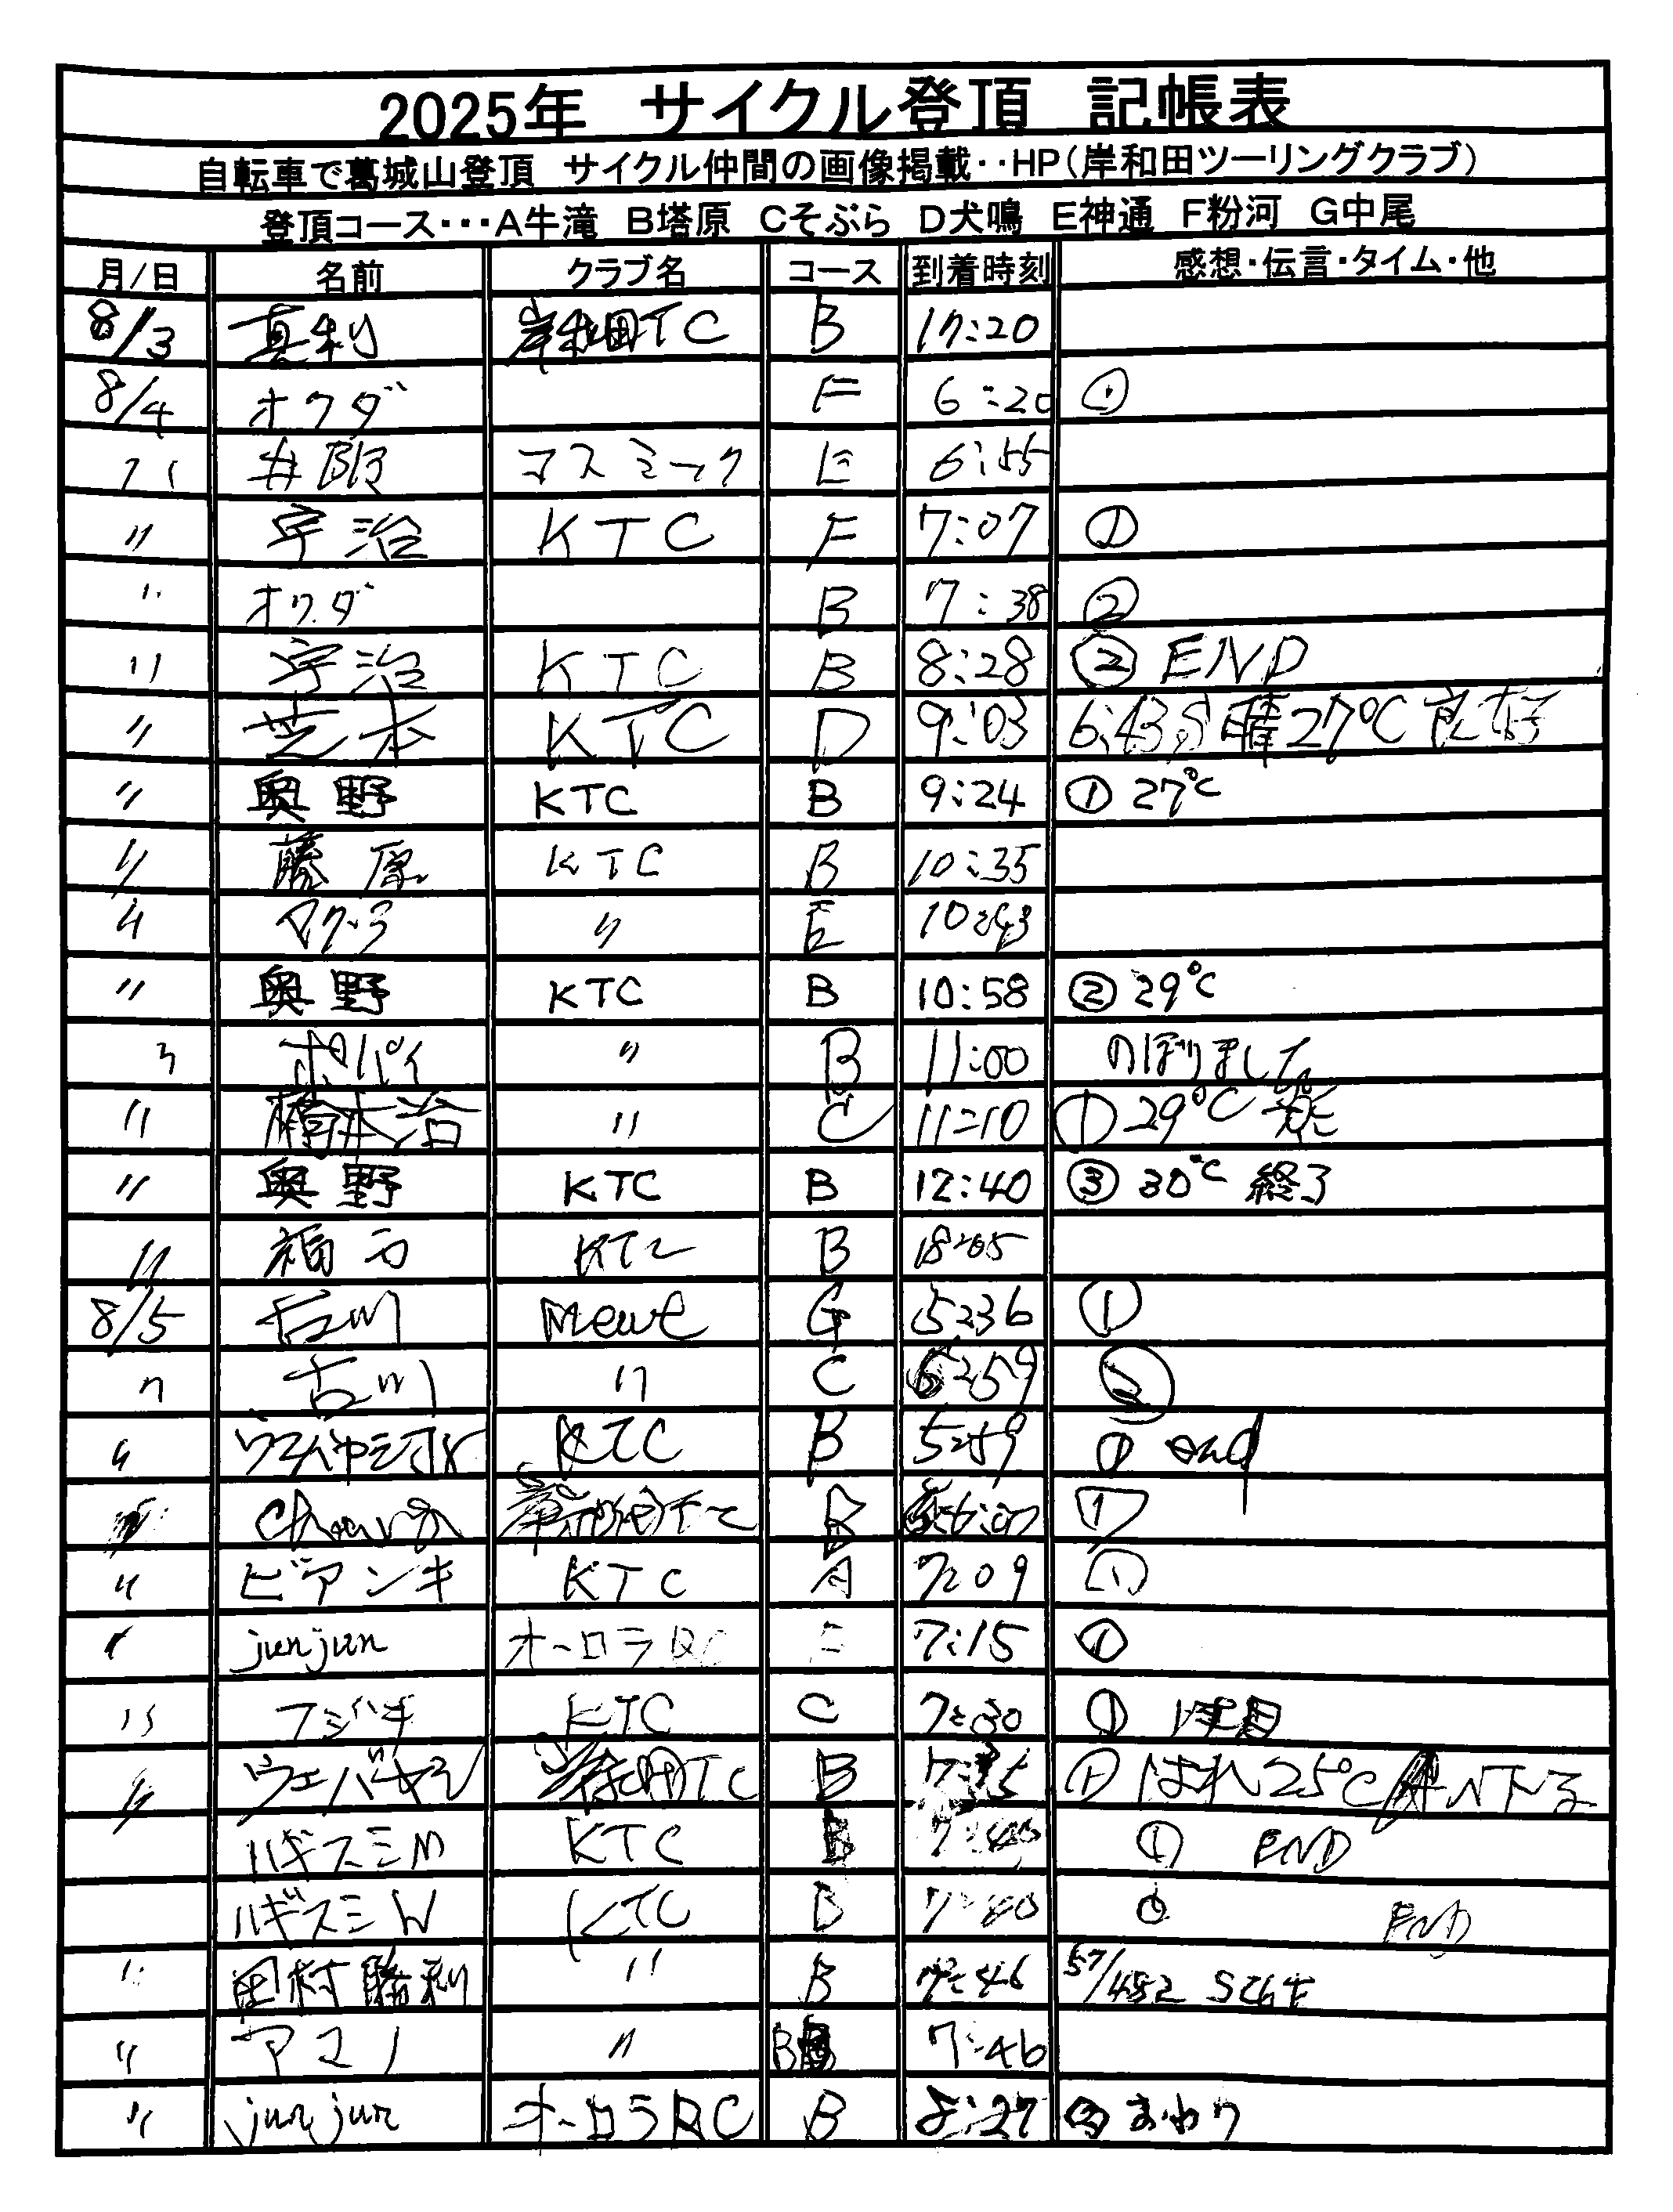 2025年 サイクル登頂 記帳表
自転車で葛城山登頂 サイクル仲間の画像掲載‥HP(岸和田ツーリングクラブ)
登頂コース･･･A牛滝 B塔原 Cそぶら D犬鳴 E神通 F粉河 G中尾
月/日 名前 クラブ名 コース 到着時刻 感想・伝言・タイム・他
8/3 真利 岸和田TC B 17:20
8/4 オクダ F 6:20 ①
〃 井阪 コスミック E 6:55
〃 宇治 KTC F 7:07 ①
〃 オクダ B 7:38 ②
〃 宇治 KTC B 8:28 ② END
〃 芝本 KTC D 9:03 晴27℃ 良好
〃 奥野 KTC B 9:24 ① 27℃
〃 藤原 KTC B 10:35
〃 〃 E 10:43
〃 奥野 KTC B 10:58 ② 29℃
〃 ポパイ 〃 B 11:00 のぼりました
〃 橋本治 〃 C 11:10 ① 29℃
〃 奥野 KTC B 12:40 ③ 30℃ 終了
〃 KTC B 18:05
8/5 古川 Mewt G 5:36 ①
〃 古川 〃 C 6:59 ②
〃 KTC B 5:59 ① end
B ①
〃 ビアンキ KTC A 7:09 ①
〃 junjun オーロラRC 7:15 ①
〃 フジバキ KTC C 7:30 ①
〃 ヴェバヤン 岸和田TC B ① はれ 25℃
ハギスミM KTC B 7:40 ① END
ハギスミW KTC B 7:40 ① END
〃 田村勝利 〃 B 7:46 57/452
〃 アマノ 〃 B 7:46
〃 junjun オーロラRC B 8:27 ② おわり